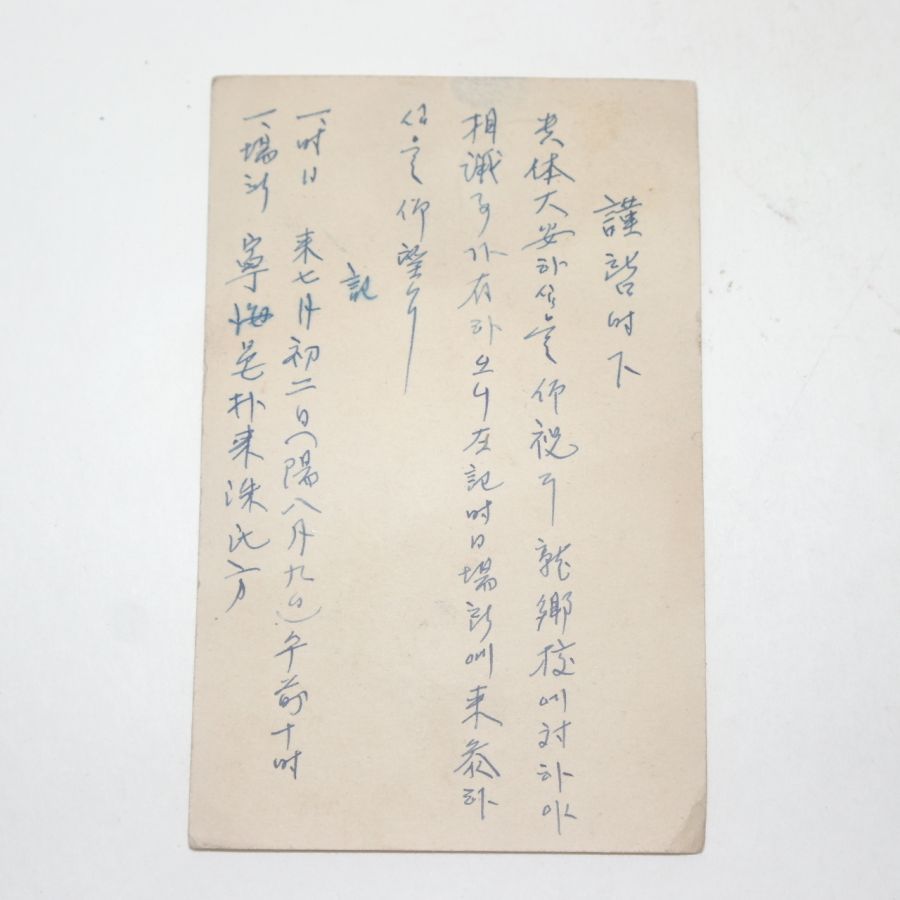 謹詢時下
貴体大安하심을 仰祝耳 就鄕校에対하야
相議事가有하오니 左記時日場所에來參하
심을 仰望
記
一、時日 來七月初二日(陽八月九日)午前十時
一、場所 寧海邑朴來洙氏方